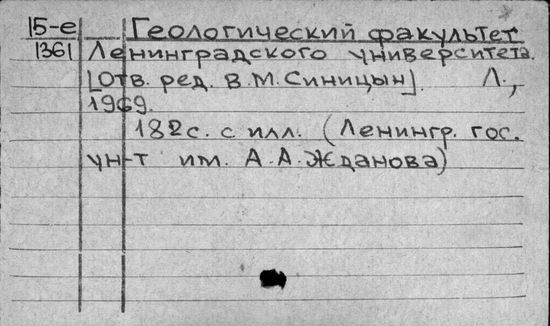 15-е Геологический факультет
1361 Ленинградского университета.
[Отв. ред. В.М.Синицын]. Л.,
1969.
182с. с илл. (Ленингр. гос.
ун-т им. А.А.Жданова)